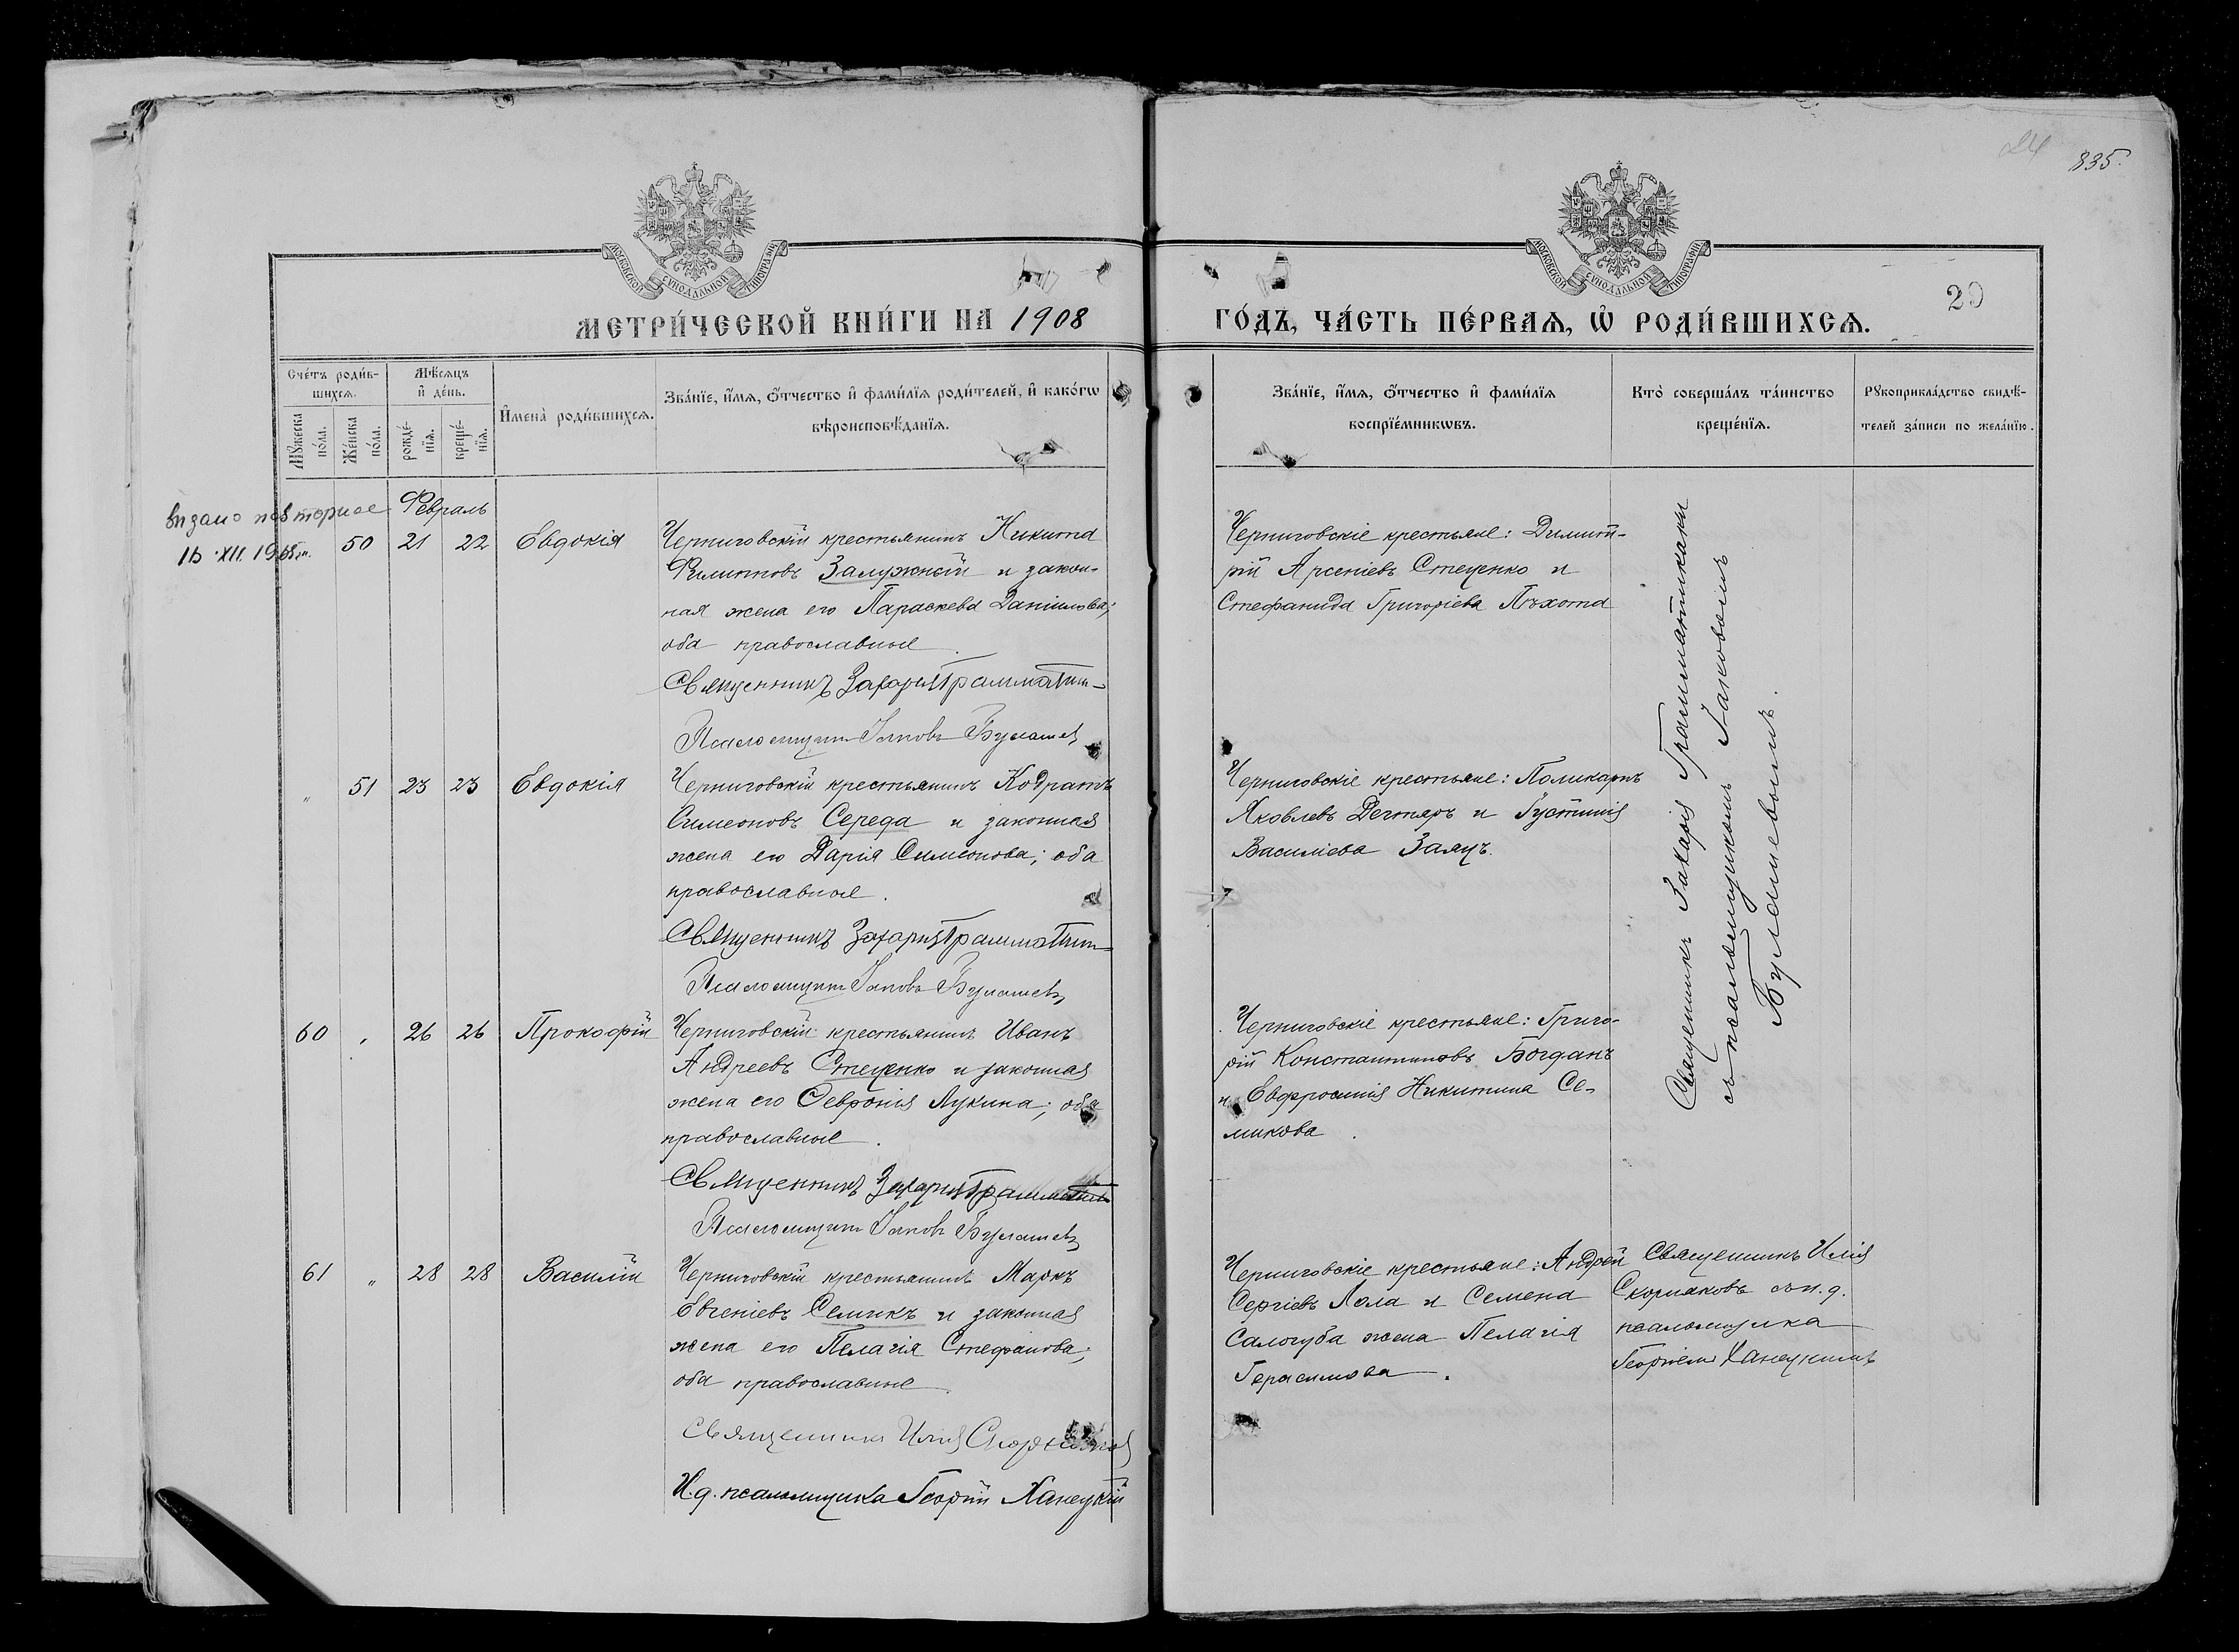 24
835.
МОСКОВСКОЙ СѴНОДАЛЬНОЙ ТИПОГРАФІИ
МОСКОВСКОЙ СѴНОДАЛЬНОЙ ТИПОГРАФІИ
20
МЕТРИ́ЧЕСКОЙ КНИ́ГИ НА 1908
ГО́ДЪ, ЧА́СТЬ ПЕ́РВАѦ, Ѡ҆ РОДИ́ВШИХСѦ.
Сче́тъ роди́в-
шихсѧ.
Мꙋ́жеска по́ла.
Же́нска по́ла.
Мѣ́сѧцъ
и҆ де́нь.
рожде́-
нїѧ.
креще́-
нїѧ.
И҆мена̀ роди́вшихсѧ.
Зва́нїе, и҆́мѧ, ѻ҆́тчество и҆ фами́лїѧ роди́телей, и҆ како́гѡ
вѣроисповѣ́данїѧ.
Зва́нїе, и҆́мѧ, ѻ҆́тчество и҆ фами́лїѧ
воспрїе́мникѡвъ.
Кто̀ соверша́лъ та́инство
креще́нїѧ.
Рꙋкоприкла́дство свидѣ́-
телей за́писи по жела́нїю.
повторное
Февраль
50 21 22 Евдокія
Черниговскій крестьянинъ Никита
Филиповъ Залужный и закон-
ная жена его Параскева Даніилова;
оба православные
Священникъ Захарій Грамматик
Псаломщикъ Іаковъ Булашев
Черниговскіе крестьяне: Димит-
рій Арсеніевъ Стеценко и
Стефанида Григоріева Пѣхота
Священникъ Захарій Грамматикаки
съ псаломщикомъ Іаковомъ
Булашевымъ.
" 51 23 23 Евдокія
Черниговскій крестьянинъ Кодратъ
Симеоновъ Середа и законная
жена его Дарія Симеонова; оба
православные.
Священникъ Захарій Грамматик
Псаломщикъ Іаковъ Булашев
Черниговскіе крестьяне: Поликарпъ
Яковлевъ Дегтяръ и Густинія
Василіева Заяцъ.
60 " 26 26 Прокофій
Черниговскій крестьянинъ Иванъ
Андреевъ Стеценко и законная
жена его Февронія Лукина; оба
православные.
Священникъ Захарій Грамматик
Псаломщикъ Іаковъ Булашев
Черниговскіе крестьяне: Григо-
рій Константиновъ Богданъ
и Евфросинія Никитина Се-
микова.
61 " 28 28 Василій
Черниговскій крестьянинъ Маркъ
Евгеніевъ Семикъ и законная
жена его Пелагія Стефанова;
оба православные.
Священникъ Илія
И.д. псаломщика Георгій Ханецкій
Черниговскіе крестьяне: Андрей
Сергіевъ Лола и Семена
Салогуба жена Пелагія
Герасимова.
Священникъ Илія
Скорняковъ съ и.д.
псаломщика
Георгіемъ Ханецкимъ